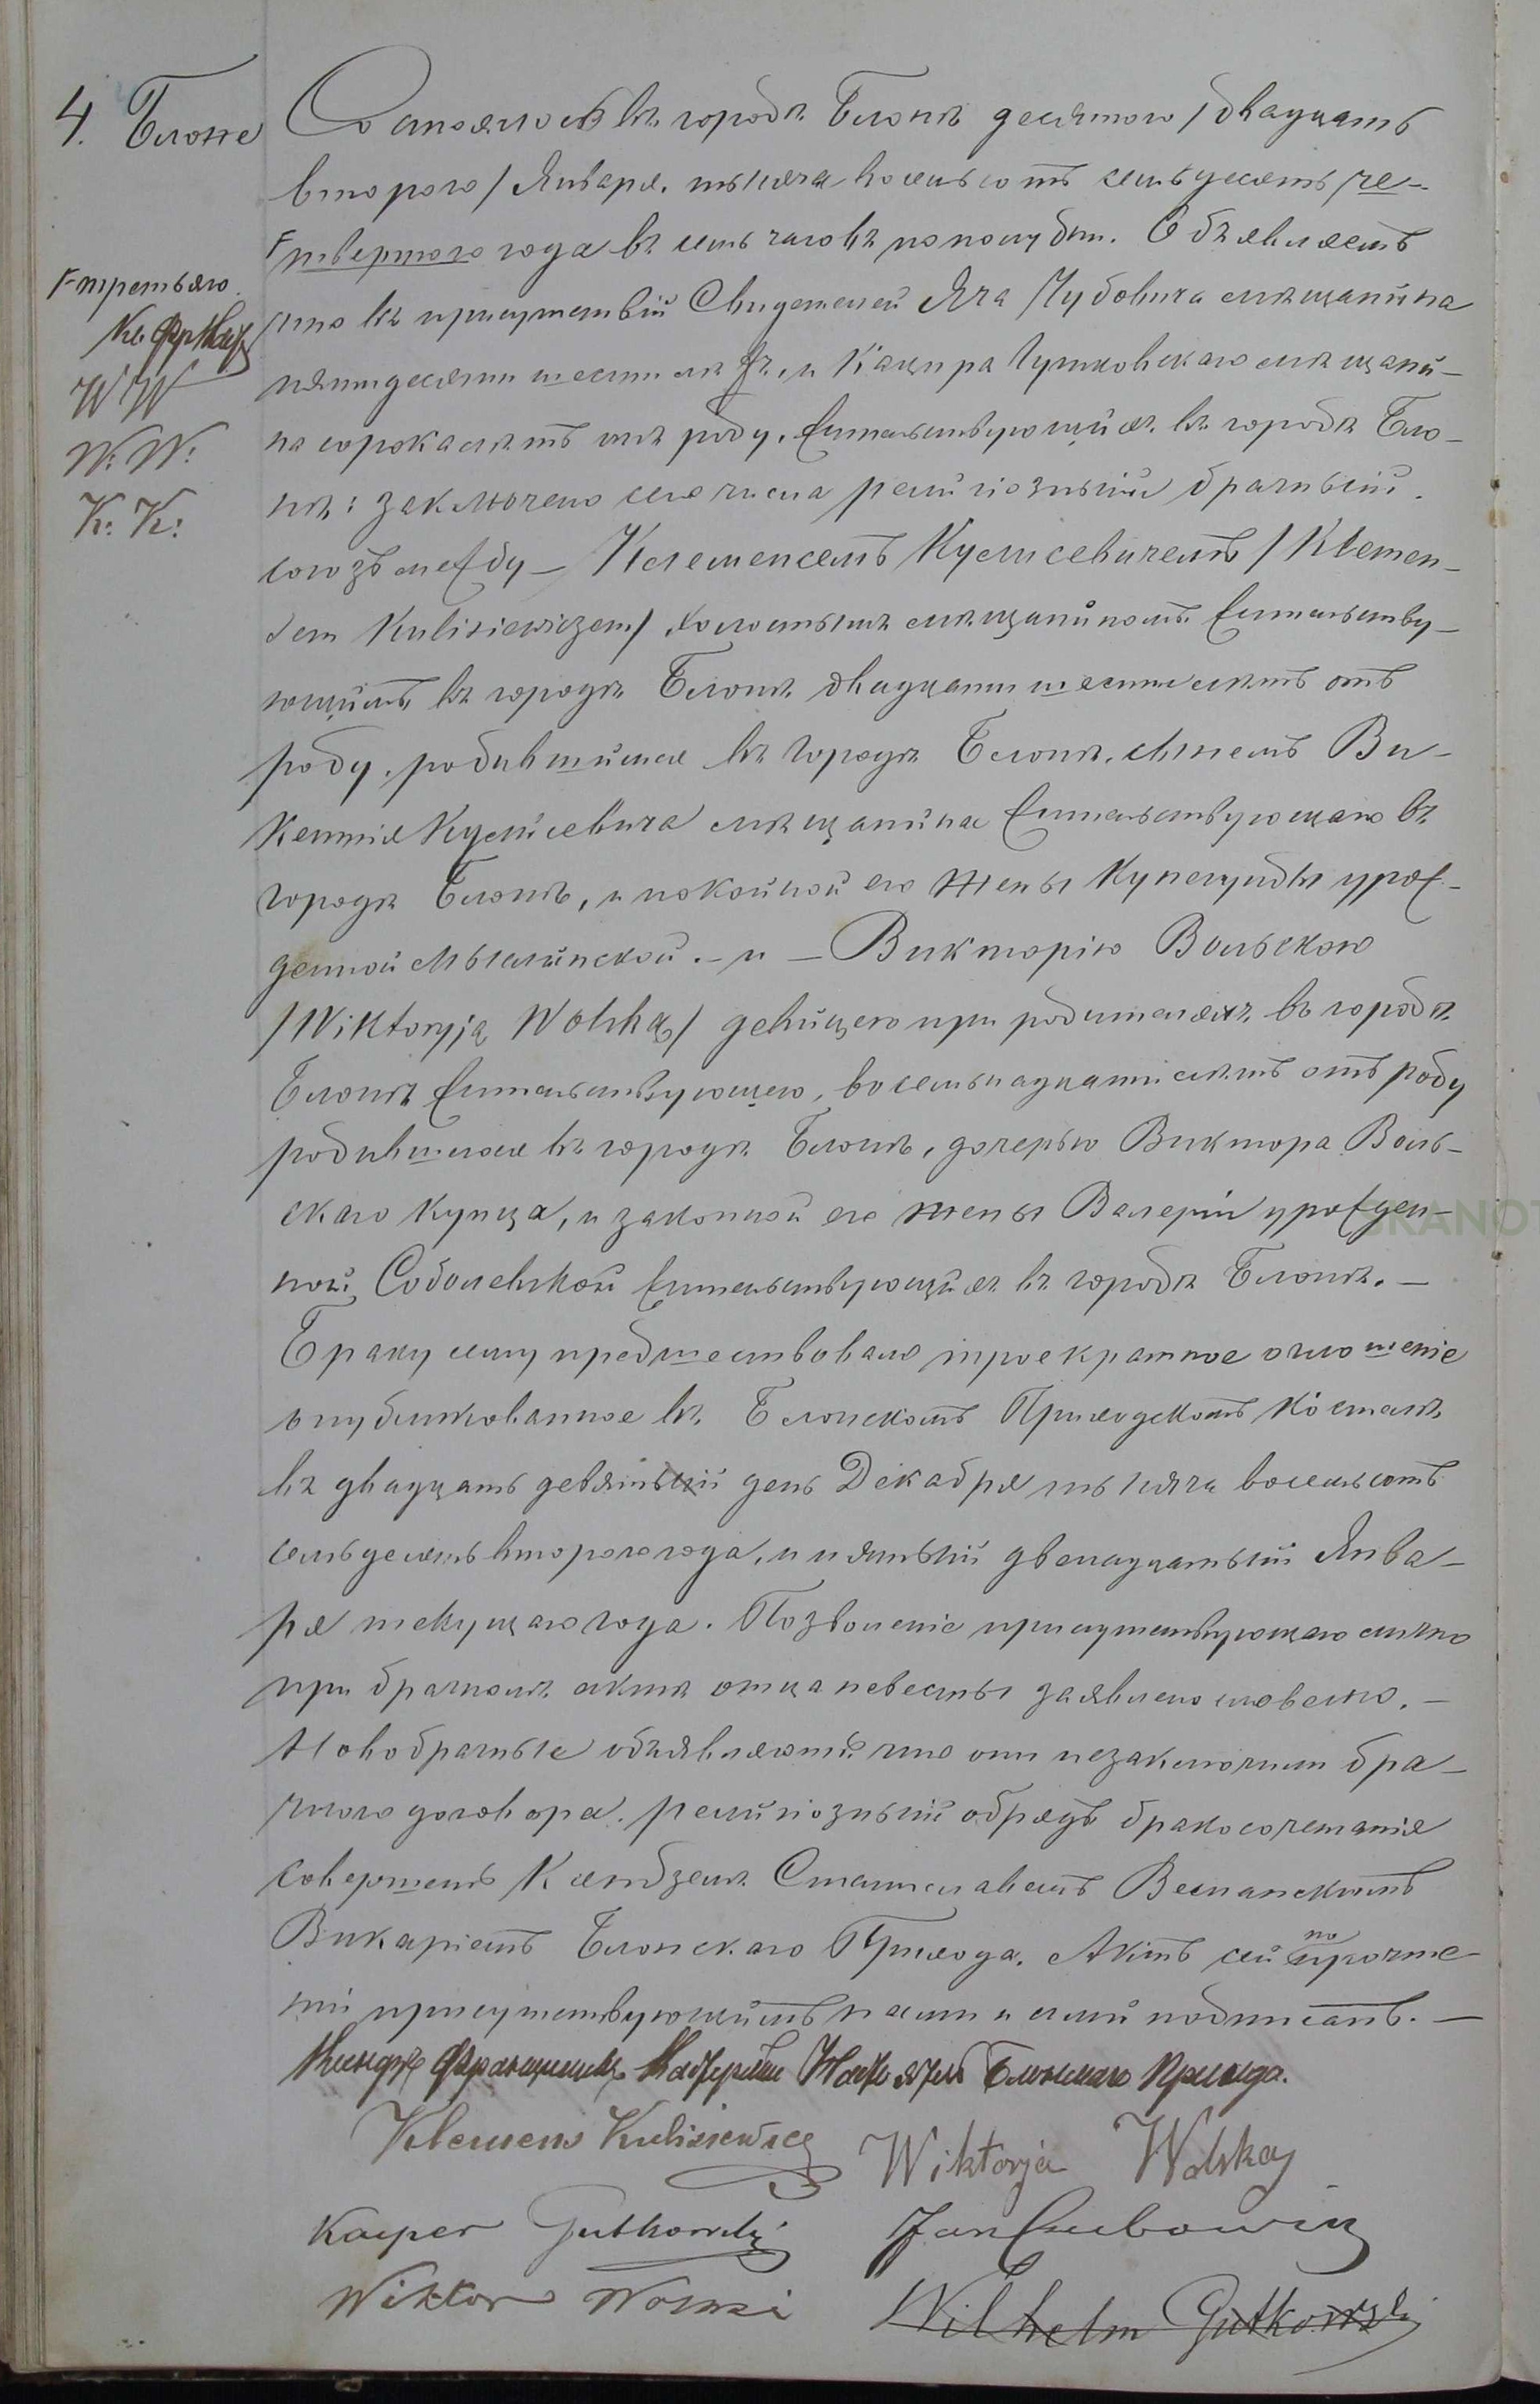 4. Блоне
Состоялось въ городѣ Блонѣ десятаго /двадцать
втораго/ Января, тысяча восемьсотъ семьдесятъ че-
твертаго года въ семь часовъ пополудни. Объявляемъ
что въ присутствіи Свидетелей Яна Чубовича мѣщанина
пятидесяти шести лѣтъ, и Кацпра Гутковскаго мѣщани-
на сорока лѣтъ отъ роду, жительствующихъ въ городѣ Бло-
нѣ; заключено сего числа религіозный брачный
союзъ между — Клеменсемъ Кулисевичемъ /Klemen-
sem Kulisiewiczem/ холостымъ мѣщаниномъ жительству-
ющимъ въ городѣ Блонѣ двадцати шести лѣтъ отъ
роду, родившимся въ городѣ Блонѣ, сыномъ Ви-
кентія Кулисевича мѣщанина жительствующаго въ
городѣ Блонѣ, и покойной его жены Кунегунды урож-
денной . — и — Викторію Вольскою
/Wiktoryją Wolską/ девицею при родителяхъ въ городѣ
Блонѣ жительствующею, восемнадцати лѣтъ отъ роду
родившеюся въ городѣ Блонѣ, дочерью Виктора Воль-
скаго Купца, и законной его жены Валеріи урожден-
ной Соболевской жительствующихъ въ городѣ Блонѣ. —
Браку сему предшествовало троекратное оглошеніе
опубликованное въ Блонскомъ Приходскомъ Костелѣ
въ двадцать девятый день Декабря тысяча восемьсотъ
семьдесятъ втораго года, и пятый двенадцатый Янва-
ря текущаго года. Позволеніе присутствующаго лично
при брачномъ актѣ отца невесты заявлено словесно. —
Новобрачные объявляютъ что они незаключили бра-
чнаго договора. религіозный обрядъ бракосочетанія
совершенъ Ксендземъ Станиславемъ
Викаріемъ Блонскаго Прихода. Актъ сей по прочте-
ніи присутствующимъ нами и ими подписанъ. —
Ксендзъ Францишекъ Блонскаго Прихода.
Klemens Kulisiewicz Wiktorja Wolska
Kacper Gutkowski Jan Czubowicz
Wiktor Wolski Wilhelm Gutkowski
третьяго.
Кс. Фр
W W
W: W:
K: K: